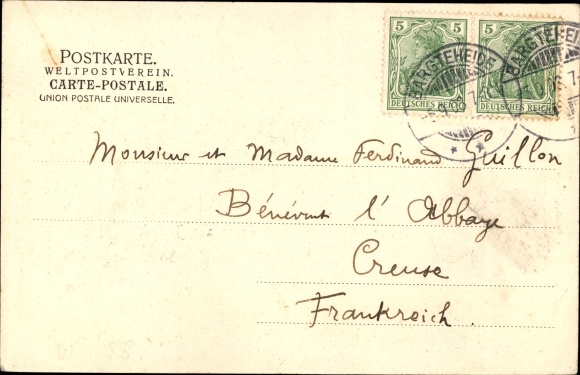 POSTKARTE.
WELTPOSTVEREIN.
CARTE-POSTALE.
UNION POSTALE UNIVERSELLE.
5 5
DEUTSCHES REICH
5 5
DEUTSCHES REICH
BARGTEHEIDE
BARGTEHEIDE
Monsieur et Madame Ferdinand Guillon
Bénévent l'Abbaye
Creuse
Frankreich.